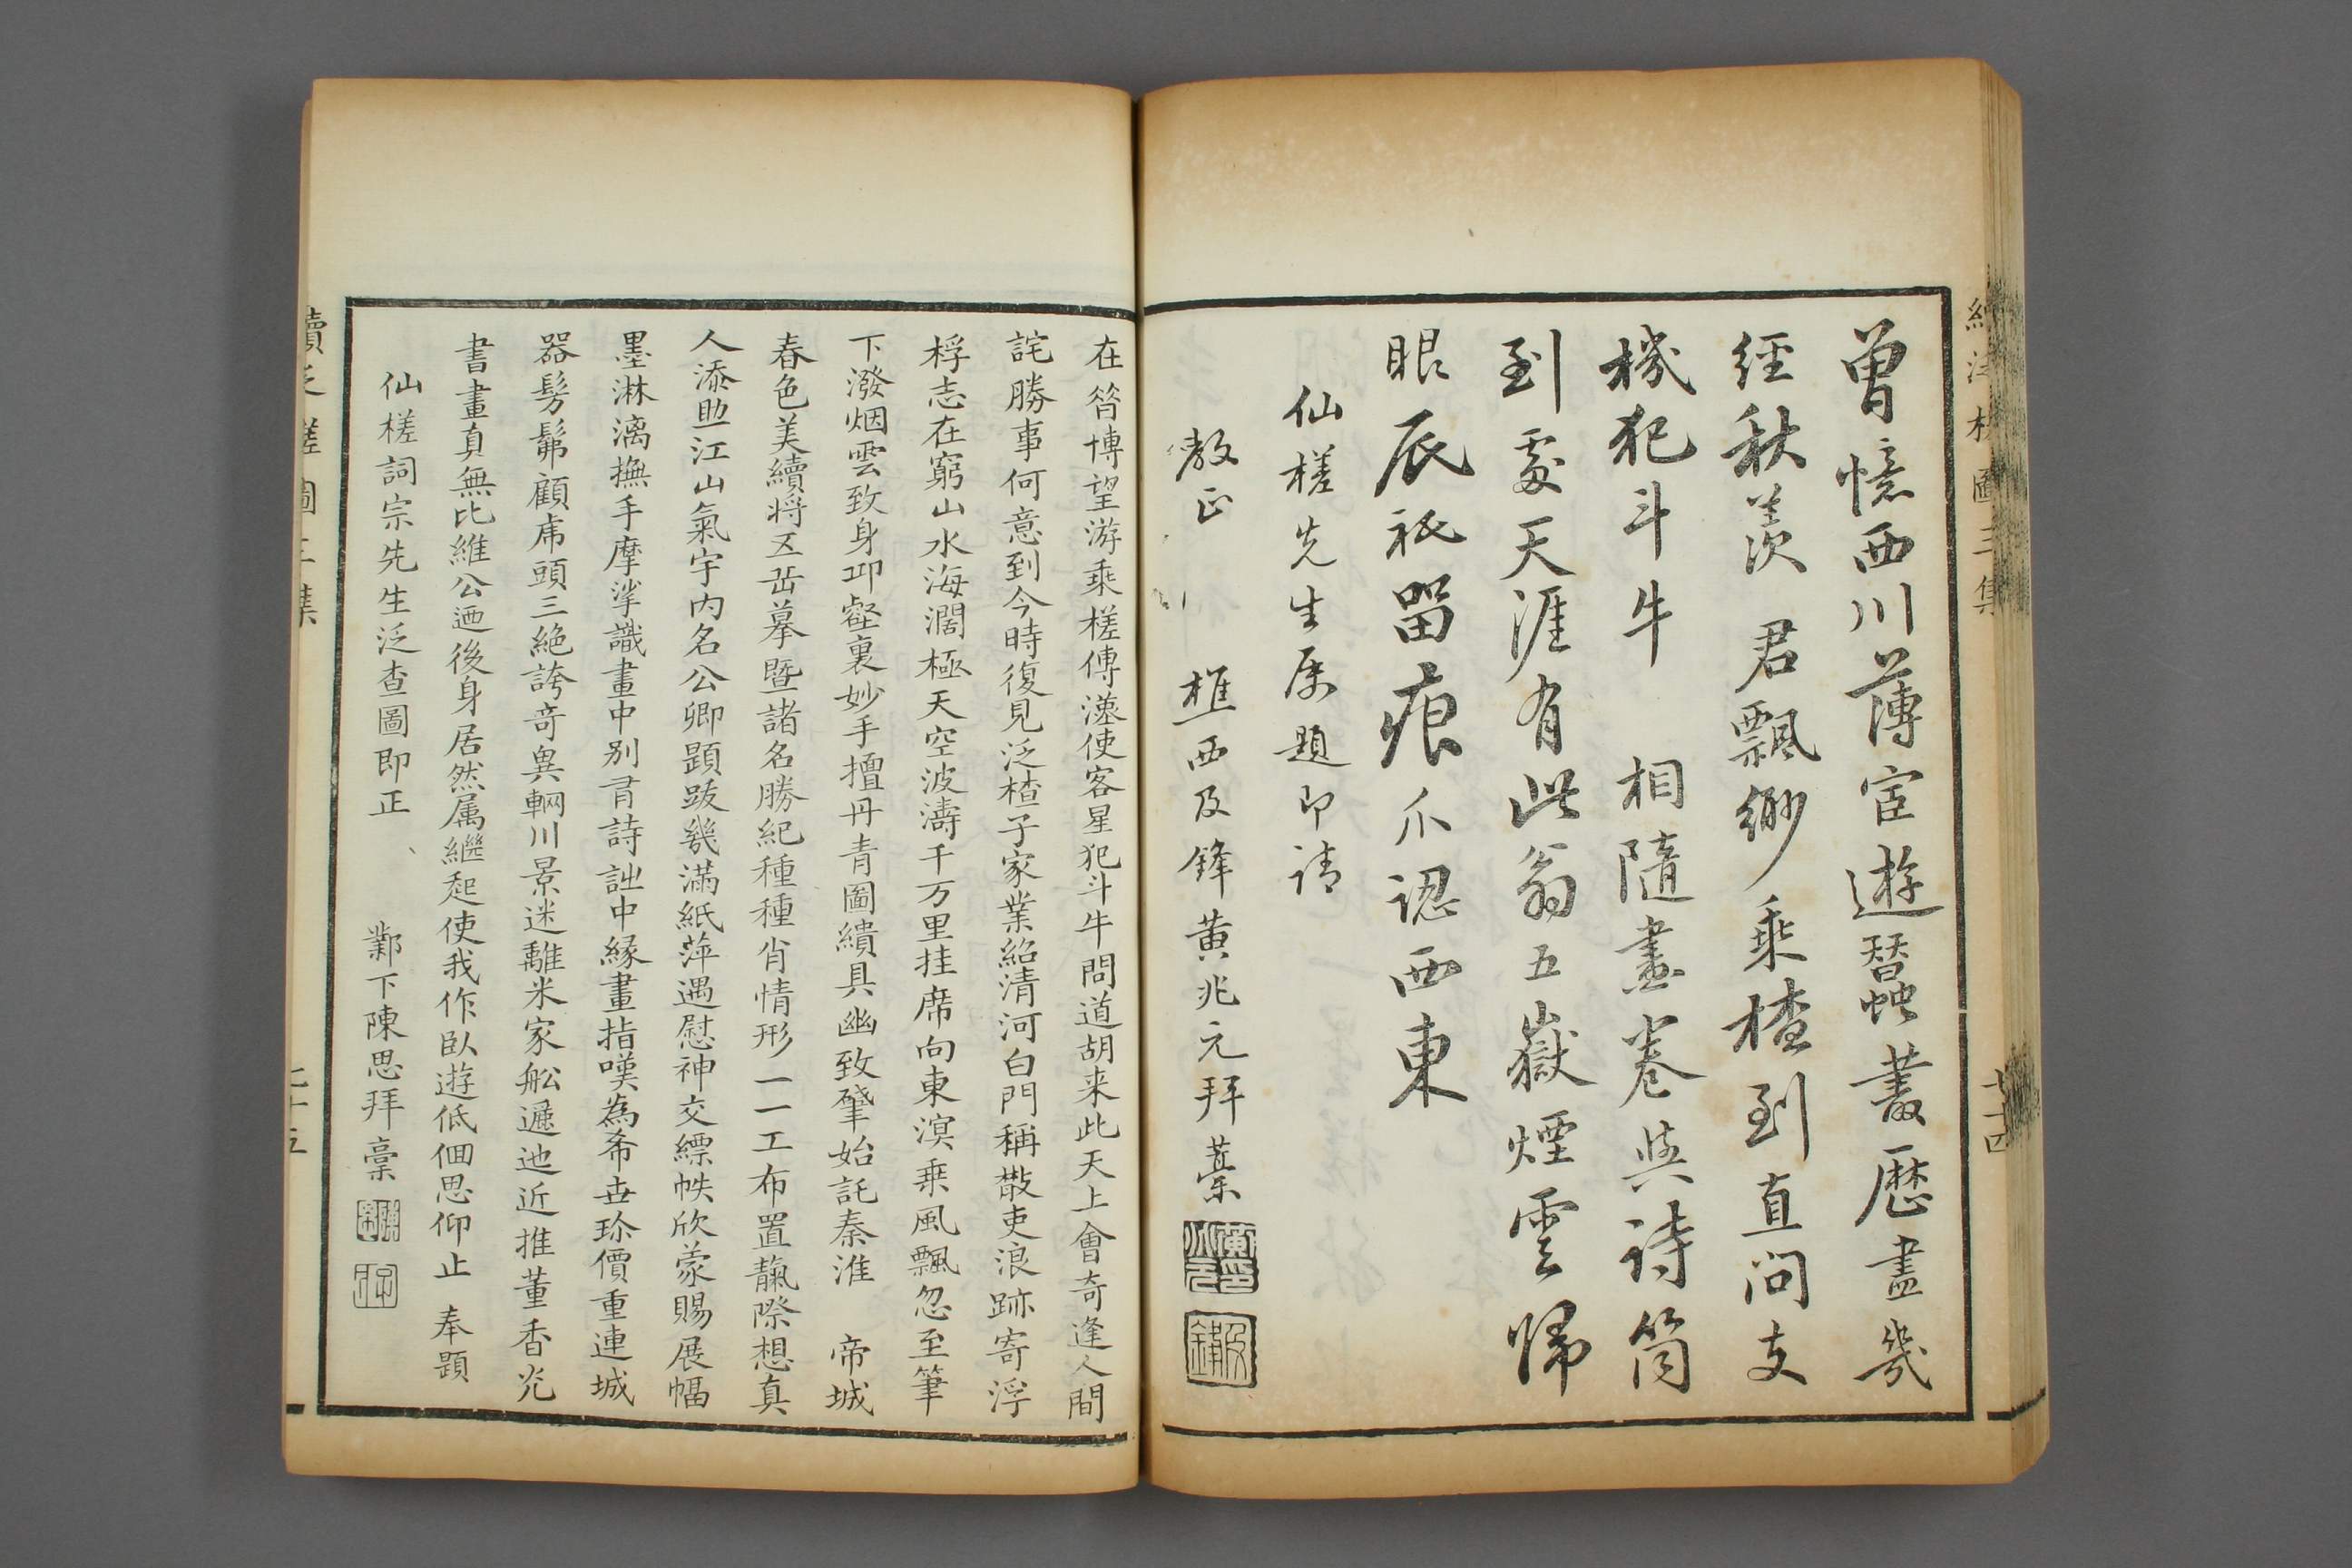 曾憶西川薄宦遊蠶叢歷盡幾
經秋羨 君飄緲乘楂到直問支
機犯斗牛 相隨畫卷與詩筒
到處天涯有此翁五嶽煙雲歸
眼底祗留痕爪認西東
仙槎先生屬題即請
教正 樵西及鋒黃兆元拜藁
七十四
在笤博望游乘槎傅漢使客星犯斗牛問道胡来此天上會奇逢人間
詫勝事何意到今時復見泛楂子家業紹清河白門稱散吏浪跡寄浮
桴志在窮山水海濶極天空波濤千万里挂席向東溟乗風飄忽至筆
下潑烟雲致身卭壑裏妙手擅丹青圖繢具幽致肇始託秦淮 帝城
春色美續将五岳摹暨諸名勝紀種種肖情形一一工布置靝際想真
人添助江山氣宇内名公卿題跋幾滿紙萍遇慰神交縹帙欣蒙賜展幅
墨淋漓撫手摩挲識畫中别有詩詘中緣畫指嘆為希世珍價重連城
器髣髴顧虎頭三絶誇奇異輞川景迷離米家舩邐迆近推董香光
書畫真無比維公迺後身居然属繼起使我作臥遊低佪思仰止 奉題
仙槎詞宗先生泛查圖即正
鄴下陳思拜稾
續泛槎圖三集
七十五